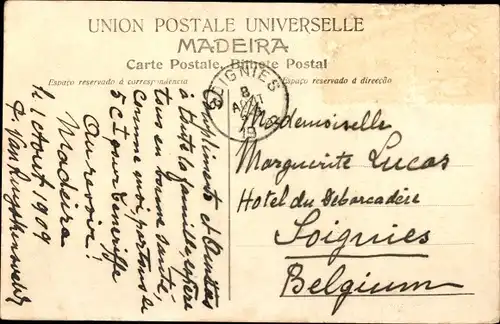 UNION POSTALE UNIVERSELLE
MADEIRA
Carte Postale. Bilhete Postal
Espaço reservado á correspondencia
Espaço reservado á direcção
SOIGNIES
8
AOUT
Compliments et Amitiés
à toute la famille, espère
tous en bonne santé,
comme moi, partons le
5 Ct pour Ténériffe
Au revoir!
Madeira
le 1 Aout 1909
Mademoiselle
Marguerite Lucas
Hotel du Debarcadère
Soignies
Belgium